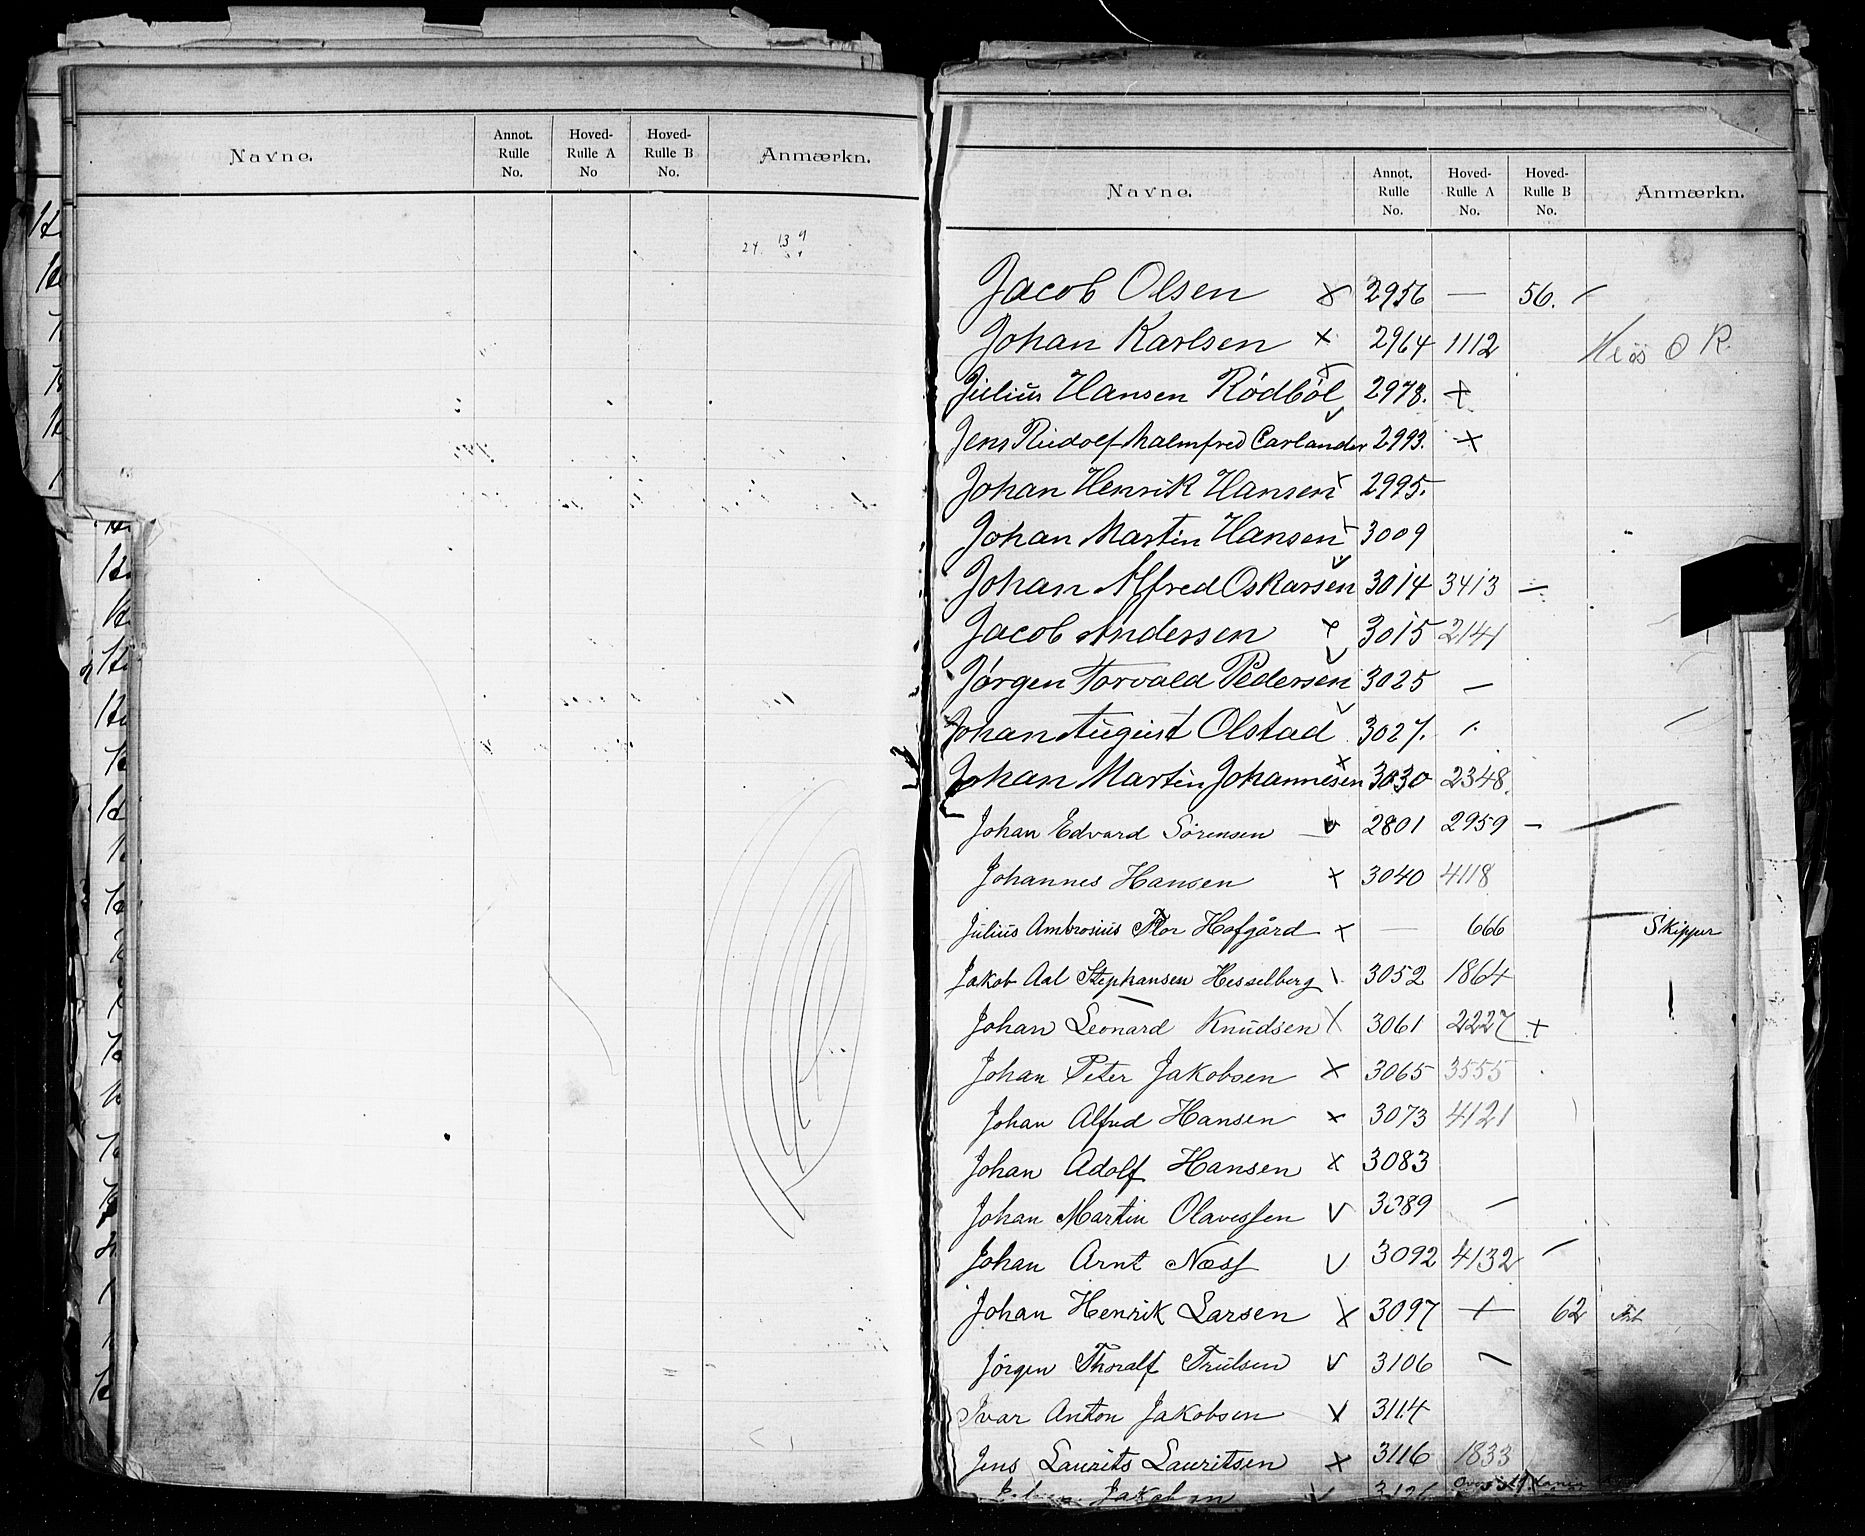 Navne. Annot. Rulle No. Hoved-Rulle A No Hoved-Rulle B No. Anmærkn.
24. 13 9
Navne. Annot. Rulle No. Hoved-Rulle A No. Hoved-Rulle B No. Anmærkn.
Jacob Olsen x 2956 — 56. /
Johan Karlsen x 2964 1112
Julius Hansen Rödböl x 2978. +
Jens Rudolf Malmfred Carlander v 2993. x
Johan Henrik Hansen x 2995.
Johan Martin Hansen x 3009
Johan Alfred Oskarsen v 3014 3413 —
Jacob Andersen x 3015 2141
Jørgen Torvald Pedersen v 3025 —
Johan August Olstad v 3027. /.
Johan Martin Johannesen x 3030 2348.
Johan Edvard Sørensen — v 2801 2959 —
Johannes Hansen x 3040 4118
Julius Ambrosius Flor Hofgård x — 666 Skipper
Jakob Aal Stephansen Hesselberg \ 3052 1864
Johan Leonard Knudsen x 3061 2227 +
Johan Peter Jakobsen x 3065 3555
Johan Alfred Hansen x 3073 4121
Johan Adolf Hansen x 3083
Johan Martin Olavessen v 3089 —
Johan Arnt Næss v 3092 4132 —
Johan Henrik Larsen x 3097 + 62
Jörgen Thoralf Trulsen v 3106 —
Ivar Anton Jakobsen v 3114
Jens Laurits Lauritsen x 3116 1833
Jakobsen v 3126